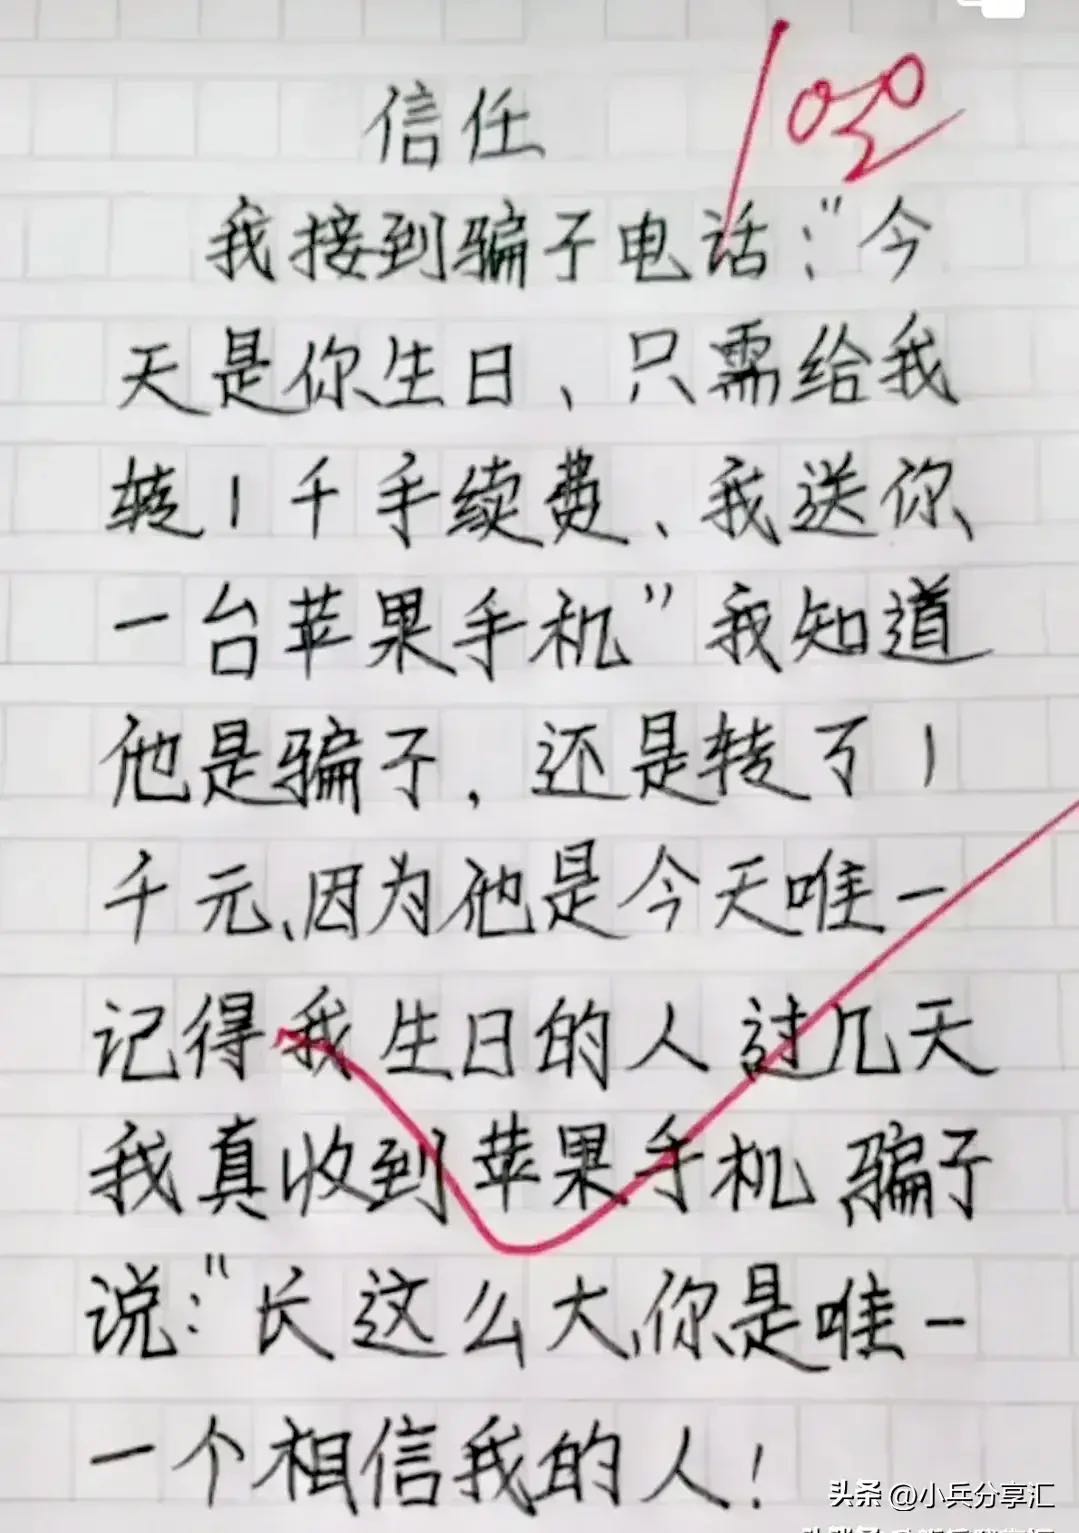 信任
100
我接到骗子电话："今
天是你生日、只需给我
转1千手续费、我送你
一台苹果手机"我知道
他是骗子，还是转了1
千元、因为他是今天唯一
记得我生日的人过几天
我真收到苹果手机骗子
说："长这么大、你是唯一
一个相信我的人！
头条 @小兵分享汇